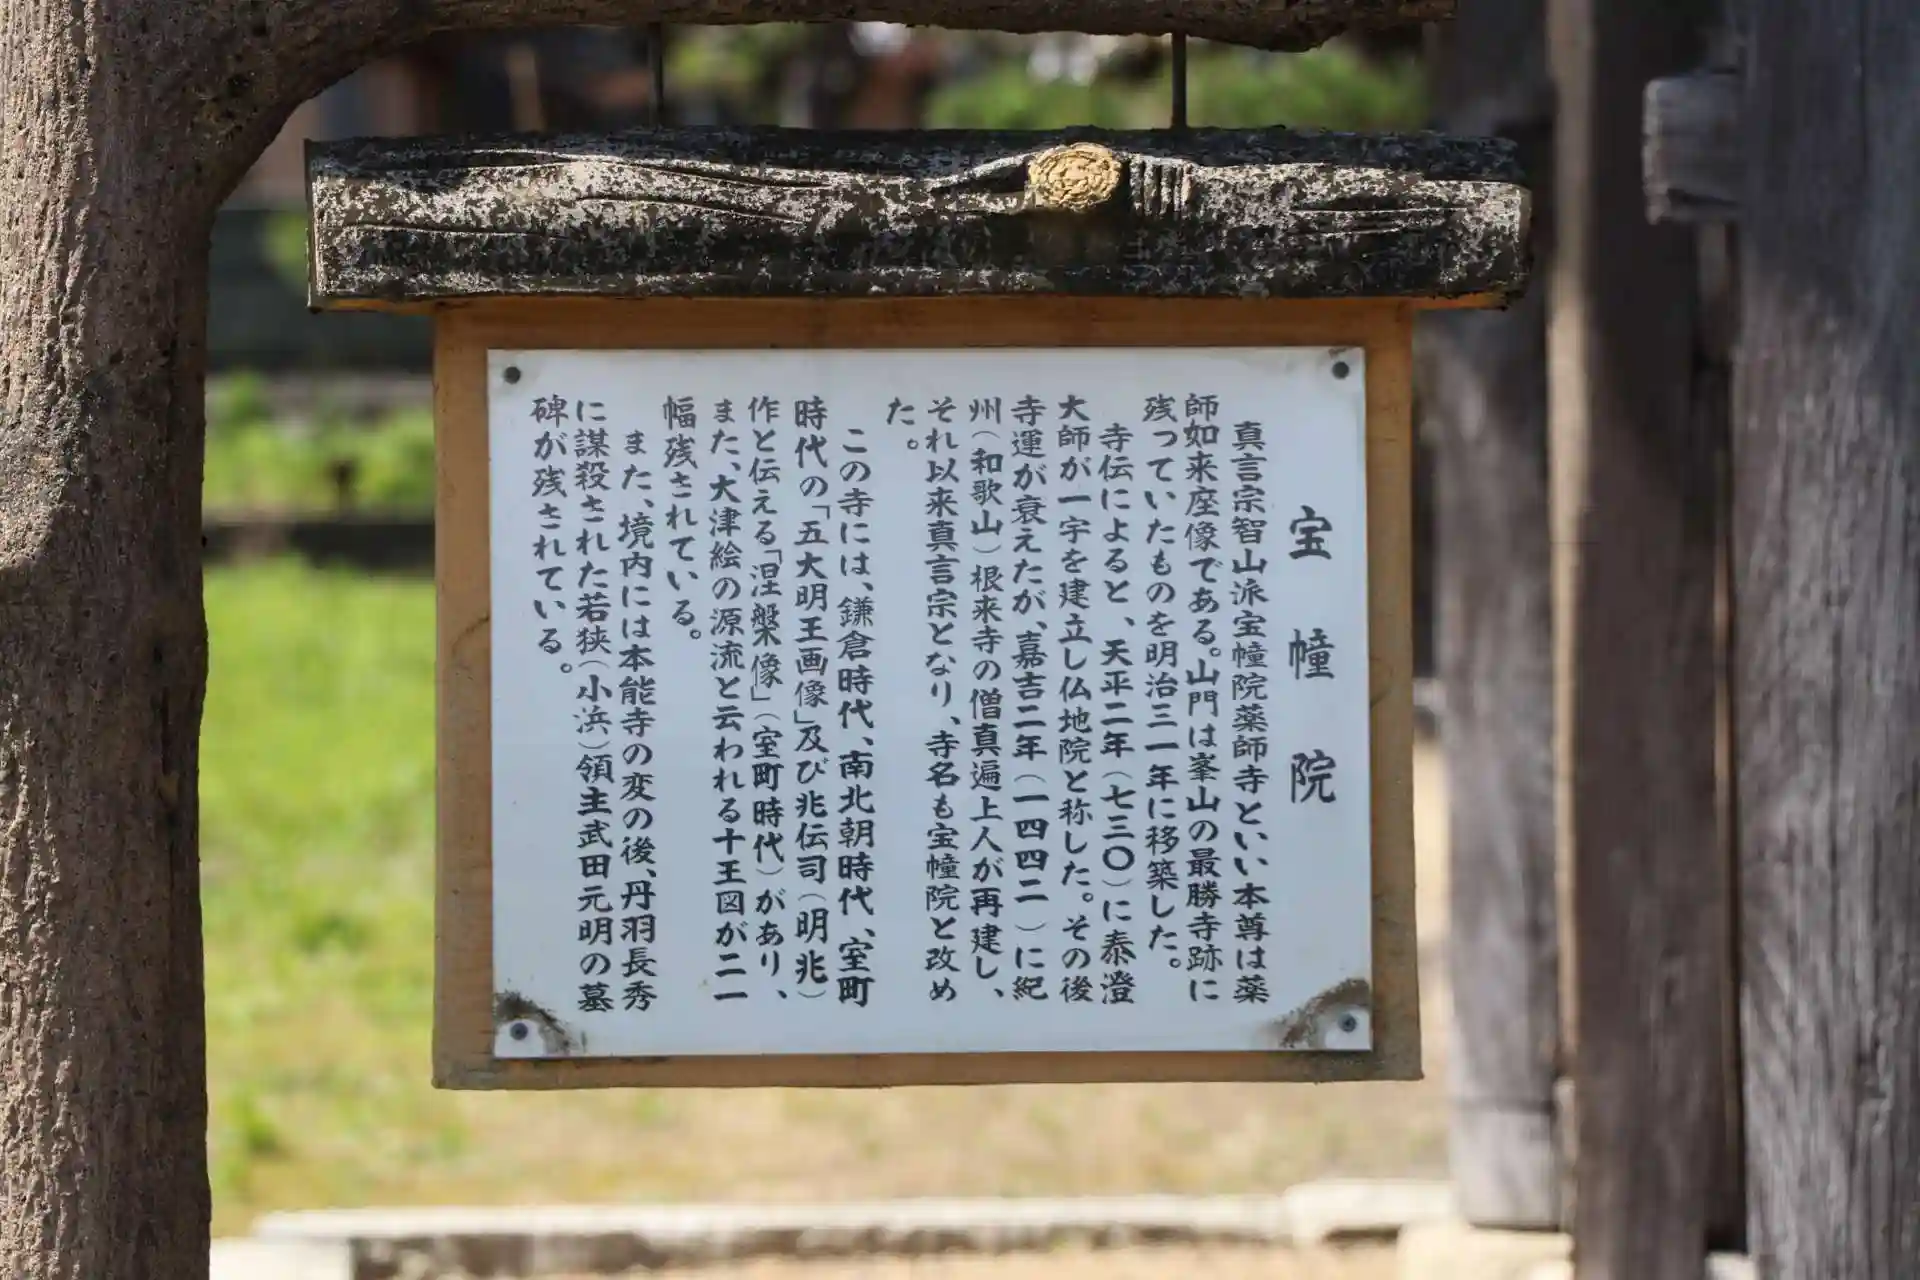 宝幢院
真言宗智山派宝幢院薬師寺といい本尊は薬
師如来座像である。山門は峯山の最勝寺跡に
残っていたものを明治三一年に移築した。
寺伝によると、天平二年(七三〇)に泰澄
大師が一宇を建立し仏地院と称した。その後
寺運が衰えたが、嘉吉二年(一四四二)に紀
州(和歌山)根来寺の僧真遍上人が再建し、
それ以来真言宗となり、寺名も宝幢院と改め
た。
この寺には、鎌倉時代、南北朝時代、室町
時代の「五大明王画像」及び兆伝司(明兆)
作と伝える「涅槃像」(室町時代)があり、
また、大津絵の源流と云われる十王図が二一
幅残されている。
また、境内には本能寺の変の後、丹羽長秀
に謀殺された若狭(小浜)領主武田元明の墓
碑が残されている。